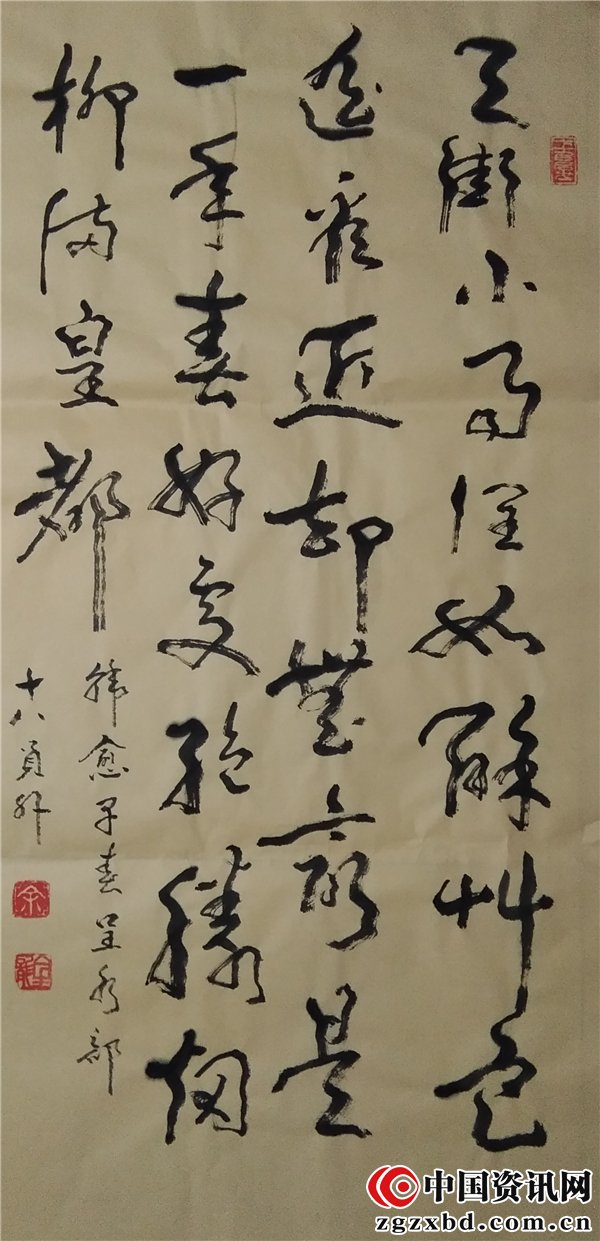 天街小雨潤如酥艸色
遥看近却無最是
一年春好處絶勝烟
柳滿皇都
韓愈早春呈水部
十八員外
余
中国资讯网
zgzxbd.com.cn